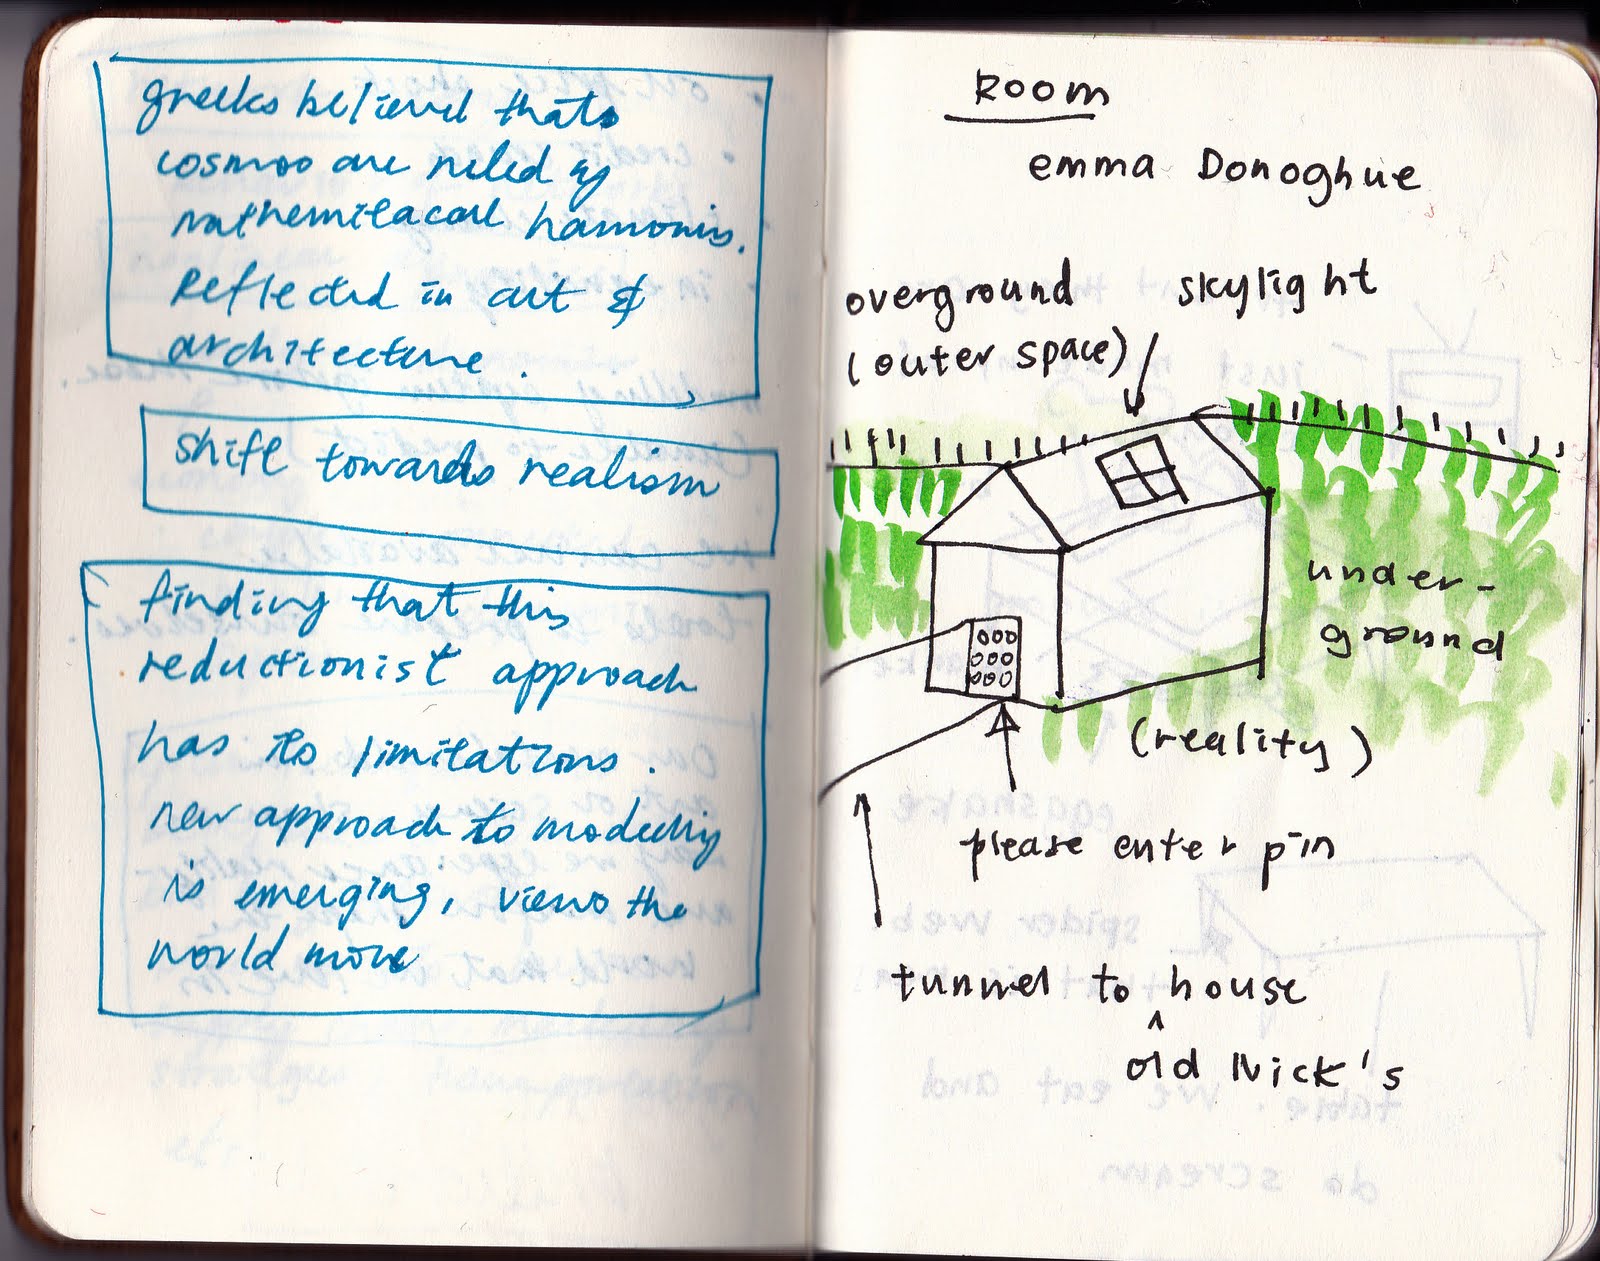 greeks believed that
cosmos are ruled by
mathemitacal harmonis.
Reflected in art &
architecture.
shift towards realism
finding that this
reductionist approach
has its limitations.
new approach to modelling
is emerging, views the
world more
Room
emma Donoghue
overground skylight
(outer space)
under-
ground
(reality)
please enter pin
tunnel to ^ house
old Nick's